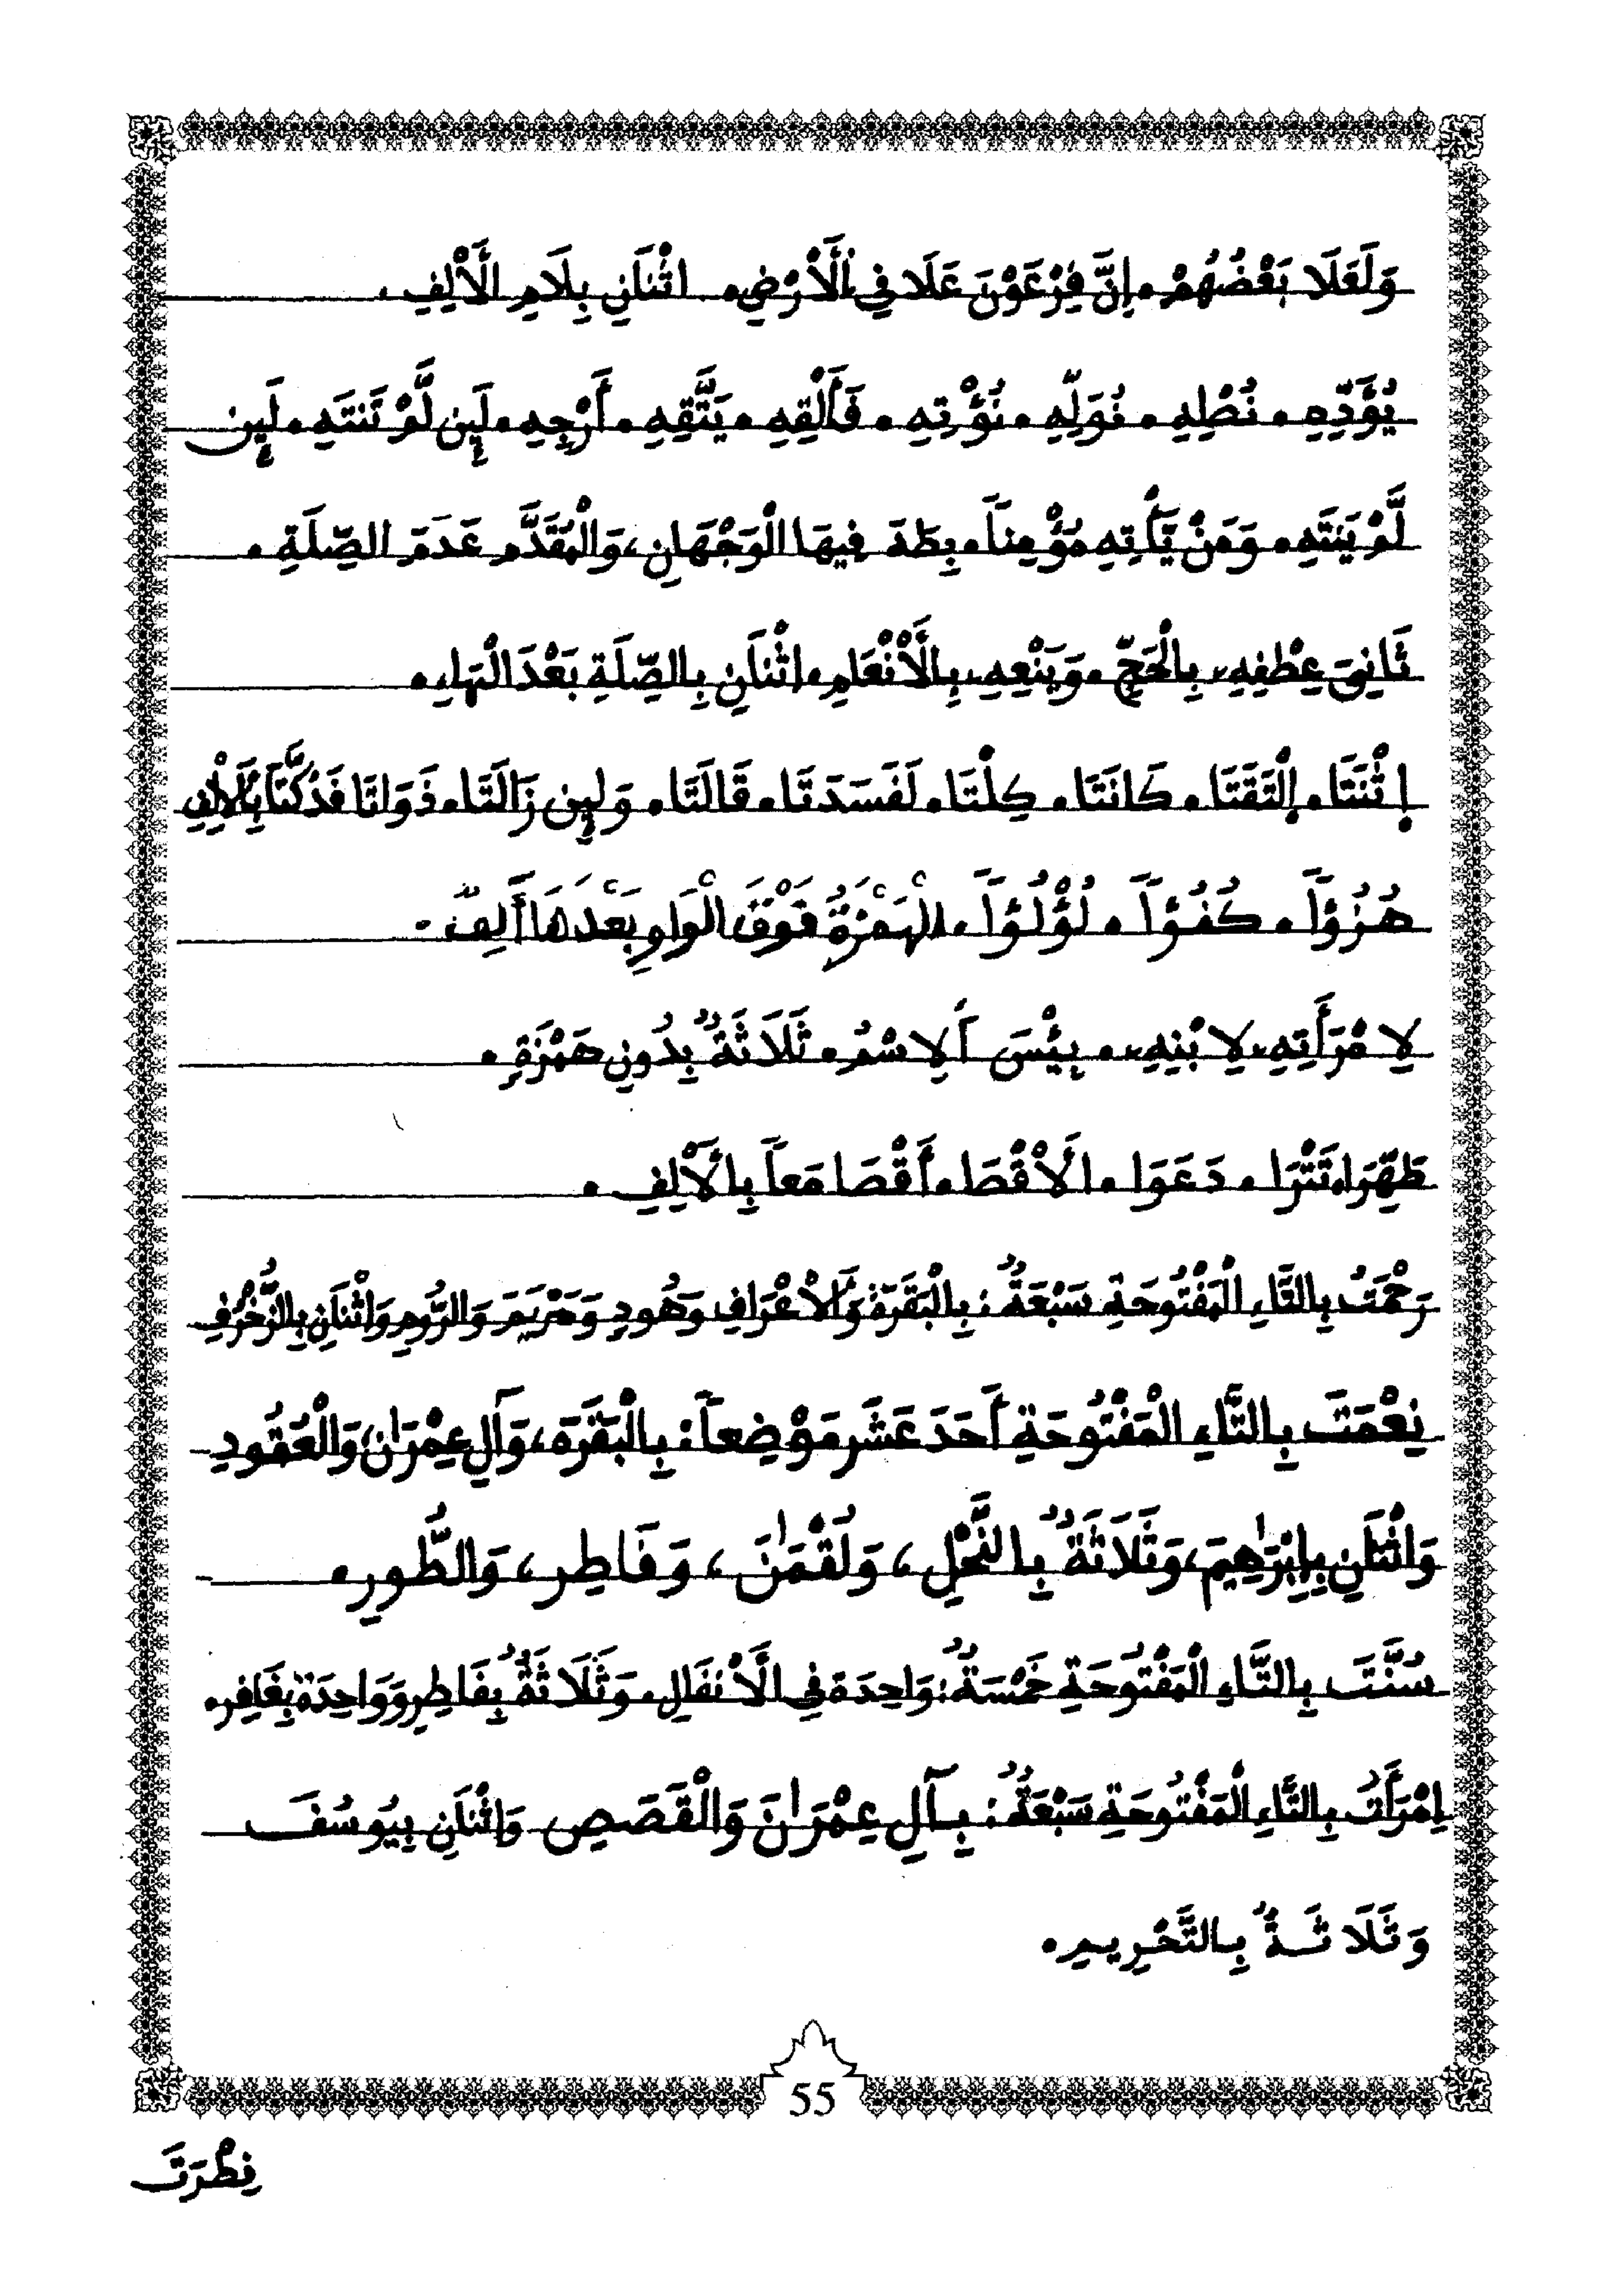 وَلَعَلَا بَعْضُهُمْ. إِنَّ فِرْعَوْنَ عَلَا فِي اَلَارْضِ. اثْنَانِ بِلَامِ الَالِفِ.
يُؤَدِّهِ. نُصْلِهِ. نُوَلِّهِ. نُؤْتِهِ. فَأَلْقِهِ. يَتَّقِهِ. أَرْجِهِ. لَئِن لَّمْ تَنتَهِ. لَئِن
لَّمْ يَنتَهِ. وَمَنْ يَّأْتِهِ مُؤْمِناً. بِطَهَ فِيهَا الْوَجْهَانِ، وَالْمُقَدَّم عَدَمَ الصِّلَةِ.
ثَانِيَ عِطْفِهِ، بِالْحَجِّ. وَيَنْعِهِ، بِالَانْعَامِ. اثْنَانِ بِالصِّلَةِ بَعْدَ الْهَاءِ.
إِثْنَتَا. اِلْتَقَتَا. كَانَتَا. كِلْتَا. لَفَسَدَتَا. قَالَتَا. وَلَئِن زَالَتَا. ذَوَاتَا فَدُكَّتَا بِالَالِفِ
هُزُؤاً. كُفُؤاً. لُؤْلُؤاً. الْهَمْزَةُ فَوْقَ الْوَاوِ بَعْدَهَا أَلِفٌ.
لِامْرَأَتِهِ، لِابْنِهِ،. بِئْسَ اَلِاسْمُ. ثَلَاثَةٌ بِدُونِ هَمْزَةٍ.
طَهِّرَا. تَتْرَا. دَعَوَا. الَاقْصَا. أَقْصَا مَعاً بِالَالِفِ.
رَحْمَتُ بِالتَّاءِ الْمَفْتُوحَةِ سَبْعَةٌ: بِالْبَقَرَةِ وَالَاعْرَافِ وَهُودٍ وَمَرْيَمَ وَالرُّومِ وَاثْنَانِ بِالزُّخْرُفِ
نِعْمَتَ بِالتَّاءِ الْمَفْتُوحَةِ أَحَدَ عَشَرَ مَوْضِعاً: بِالْبَقَرَةِ، وَآلِ عِمْرَانَ، وَالْعُقُودِ
وَاثْنَانِ بِإِبْرَاهِيمَ، وَثَلَاثَةٌ بِالنَّحْلِ، وَلُقْمَانَ، وَفَاطِر، وَالطُّورِ.
سُنَّتَ بِالتَّاءِ الْمَفْتُوحَةِ خَمْسَةٌ: وَاحِدَة فِي الَانفَالِ. وَثَلَاثَةٌ بِفَاطِرٍ وَوَاحِدَة بِغَافِر.
اِمْرَأَتُ بِالتَّاءِ الْمَفْتُوحَةِ سَبْعَةٌ: بِآلِ عِمْرَانَ وَالْقَصَصِ وَاثْنَانِ بِيُوسُفَ
وَثَلَاثَةٌ بِالتَّحْرِيمِ.
55
فِطْرَتَ